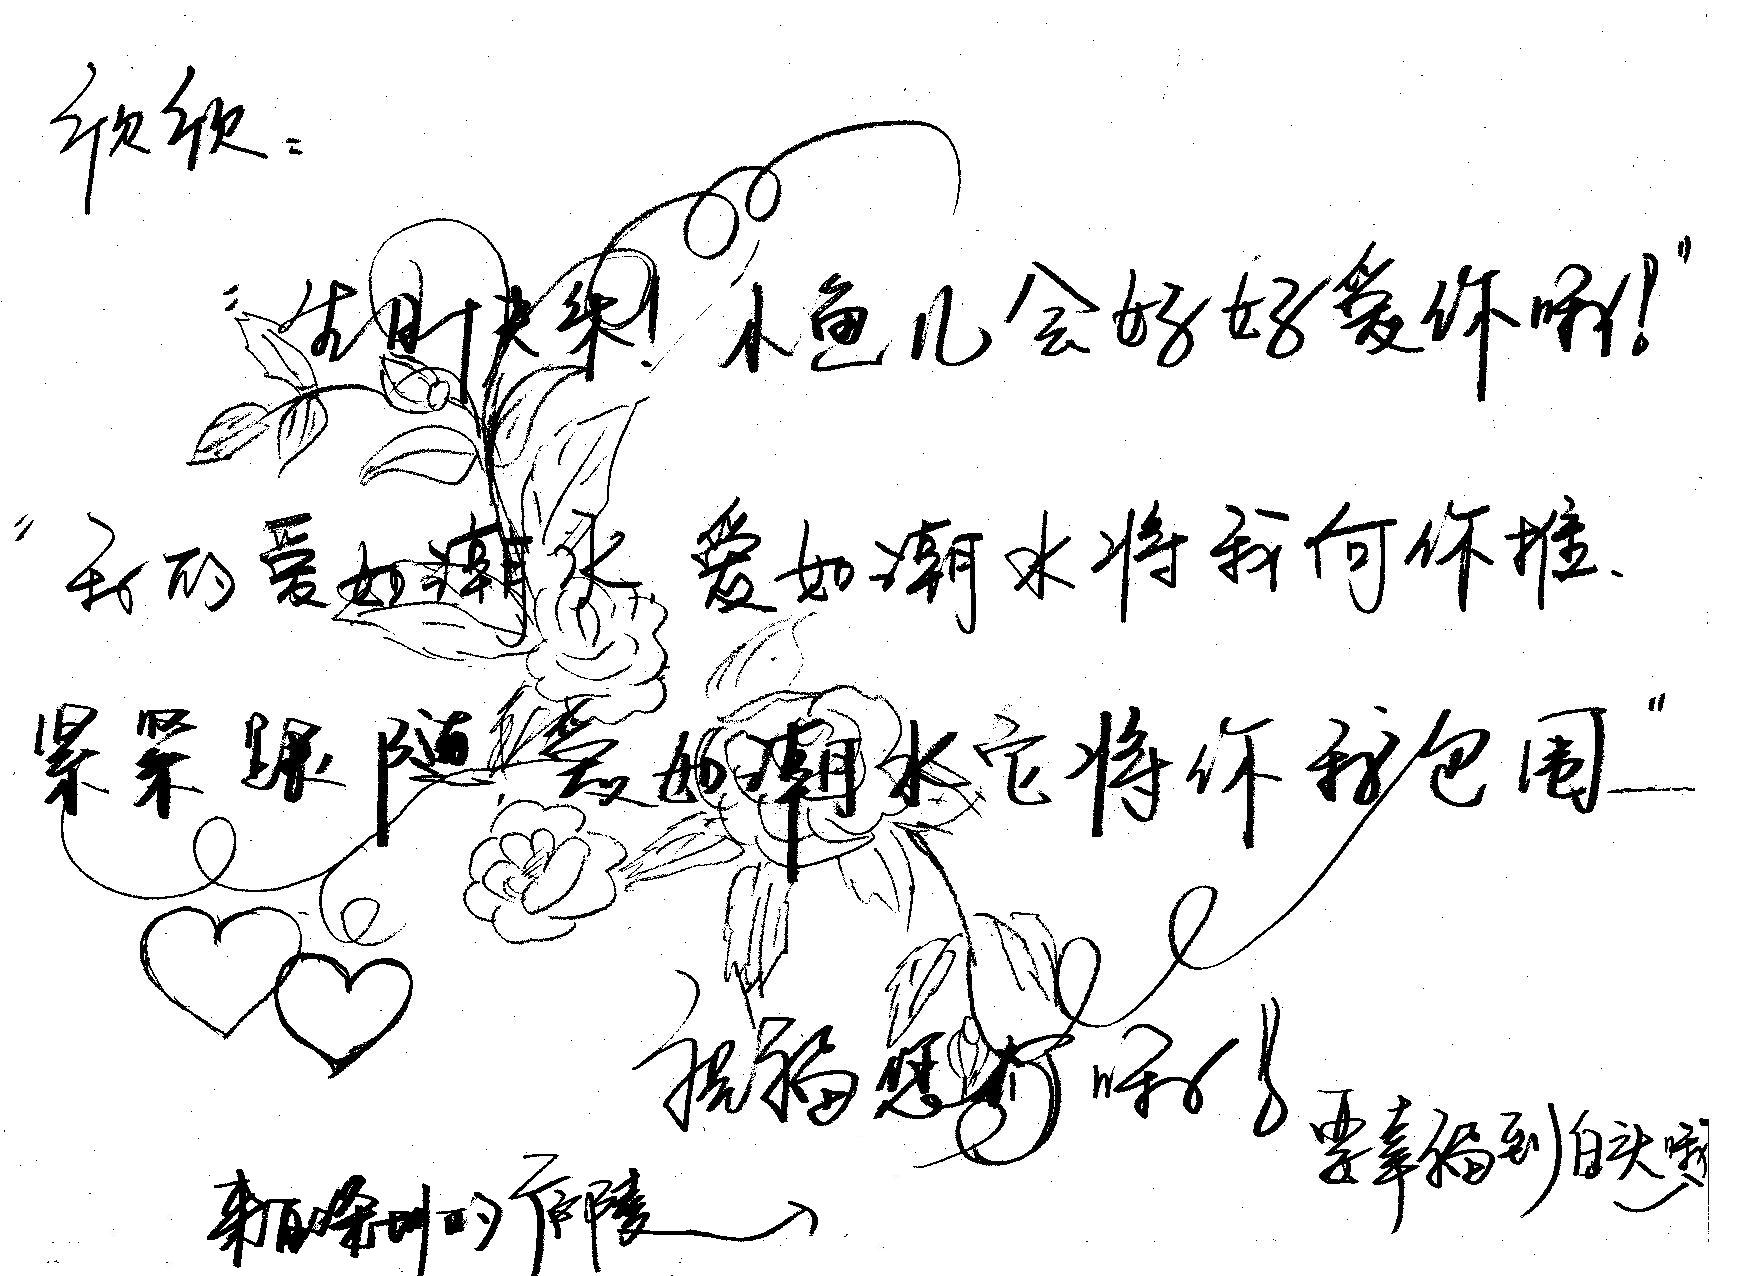 欣欣：
"生日快乐！小鱼儿会好好爱你哦！"
"我的爱如潮水 爱如潮水将我向你推、
紧紧跟随 爱如潮水它将你我包围"
祝福您们哦！
要幸福到白头哦
来自深圳的